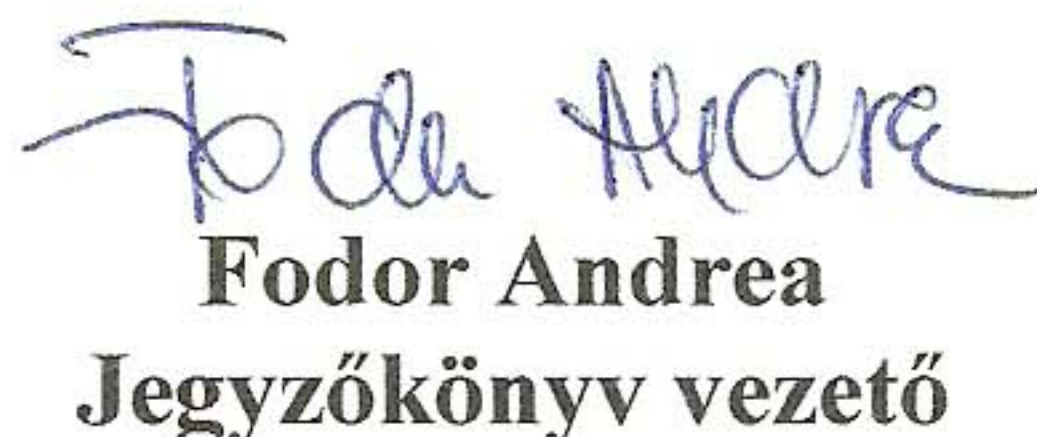 Fodor Andrea
Fodor Andrea
Jegyzőkönyv vezető